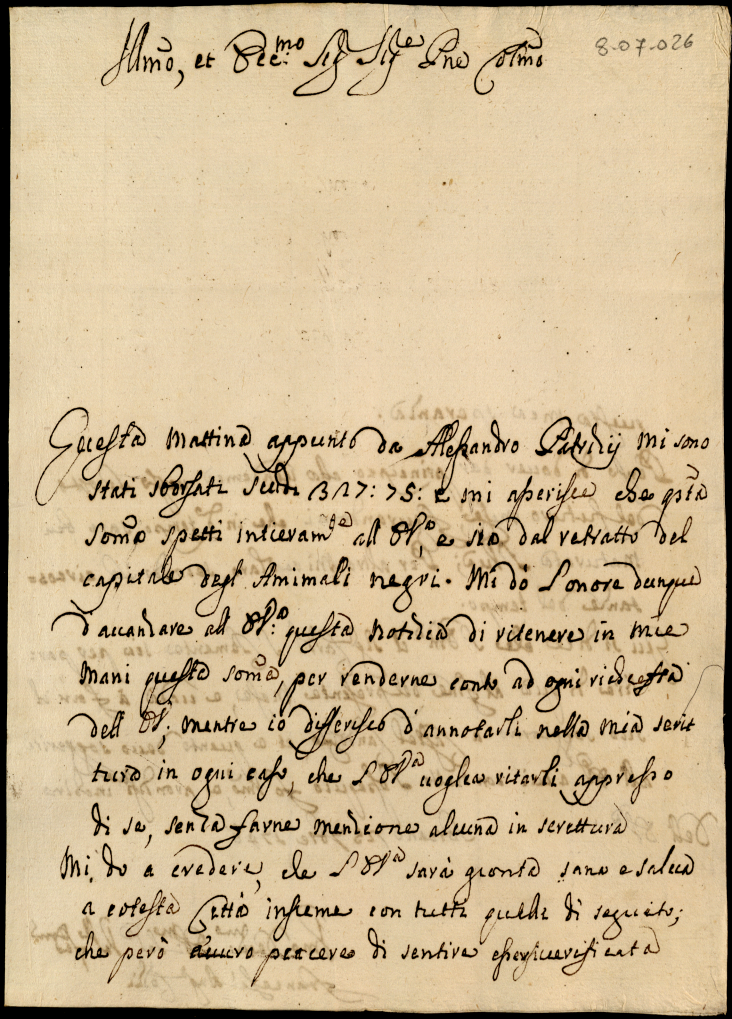 Illmo, et Ecc:mo Sig Sige Pne Colmo
8-07-026
Questa Mattina appunto da Alessandro Patrizij mi sono
stati sborsati scudi 327: 75: e mi asserisce che qsta
soma spetti intieramte all' V.a, e sia dal retratto del
capitale degl' Animali negri. Mi dò l'onore dunque
d'auanzare all' V:a questa notizia di ritenere in mie
Mani questa soma, per renderne conto ad ogni richiesta
dell' V; mentre io differisco d'annotarli nella mia scrit
tura in ogni caso, che l' V.a voglia ritarli appresso
di se, senza farne menzione alcuna in screttura
Mi do a credere, che l' V.a sarà gionta sana e salua
a cotesta Città insieme con tutti quelli di seguito;
che però auuro piacere di sentire verificata